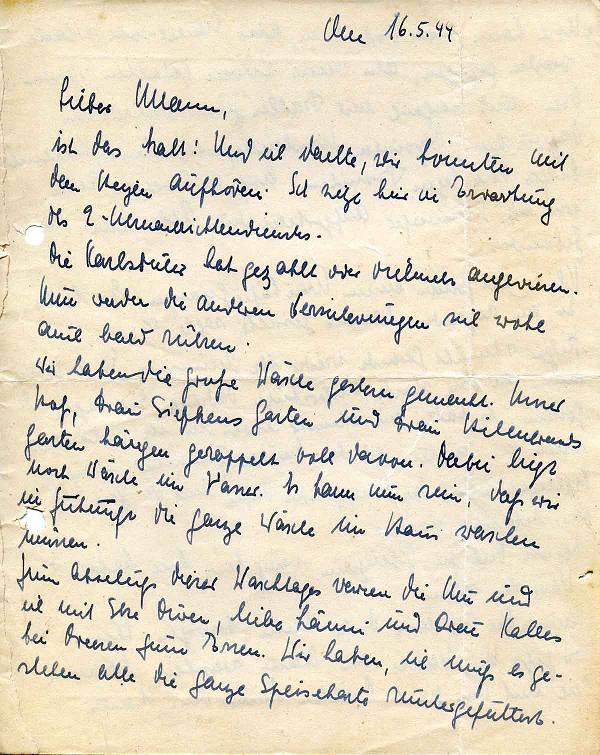 Den 16.5.44
Lieber Mann,
ist das kalt! Und ich dachte, wir könnten mit
dem Heizen aufhören. Ich sitze hier in Erwartung
des 2-Uhrnachrichtendienstes.
Die Karlsruher hat gezahlt oder vielmehr angewiesen.
Nun werden die anderen Versicherungen sich wohl
auch bald rühren.
Wir haben die große Wäsche gestern gemacht. Unser
Hof, Frau Siepkens Garten und Frau Hillenbrands
Garten hängen gerappelt voll davon. Dabei liegt
noch Wäsche im Wasser. Es kann nun sein, daß wir
in die ganze Wäsche im Haus waschen
müssen.
Zum Abschluß dieses Waschtages waren die und
ich mit und Frau Kalles
bei Dreesen zum Essen. Wir haben, ich muß es ge-
stehen alle die ganze Speisekarte runtergefuttert.